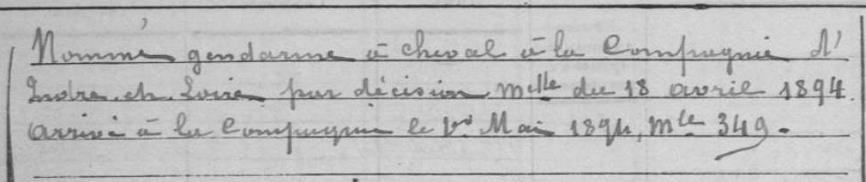 Nommé gendarme à cheval à la Compagnie d'
Indre-et-Loire par décision mlle du 18 avril 1894.
Arrivé à la Compagnie le 1er Mai 1894, mle 349.